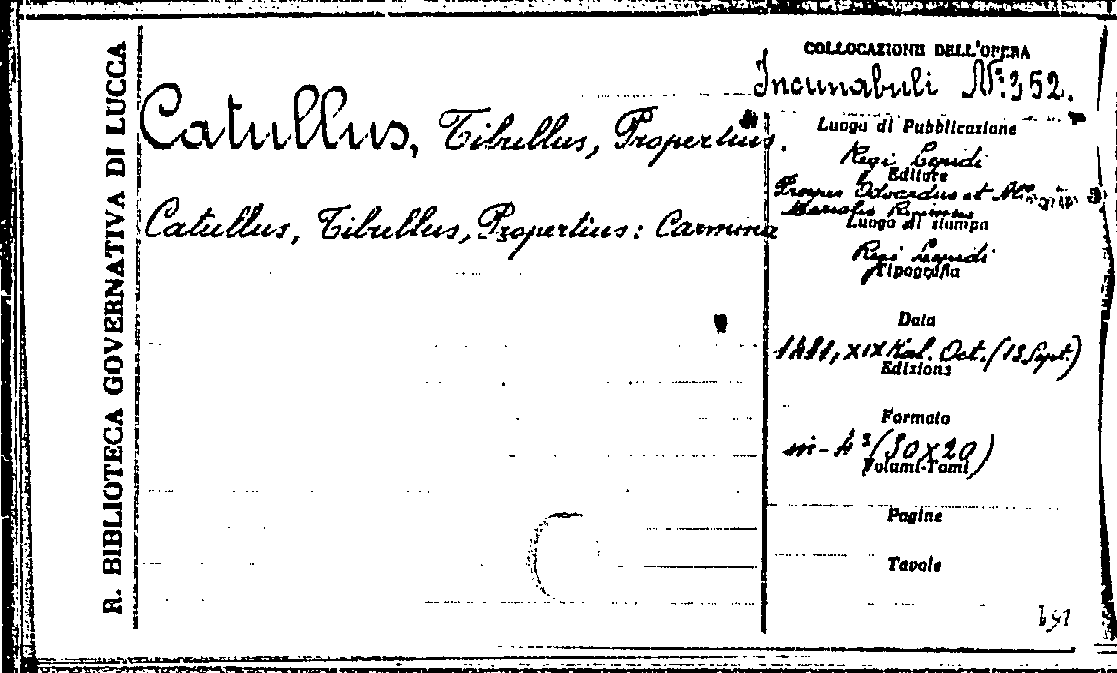 R. BIBLIOTECA GOVERNATIVA DI LUCCA
COLLOCAZIONE DELL'OPERA
Incunabuli N° 352.
Catullus, Tibullus, Propertius.
Catullus, Tibullus, Propertius: Carmina
Luogo di Pubblicazione
Regi Lepidi
Editore
Prosper Odoardus et
Luogo di stampa
Regi Lepidi
Tipografia
Data
1481, XIX Kal. Oct. (13 Sept.)
Edizione
Formato
in-4° (30x20)
Volumi-Tomi
Pagine
Tavole